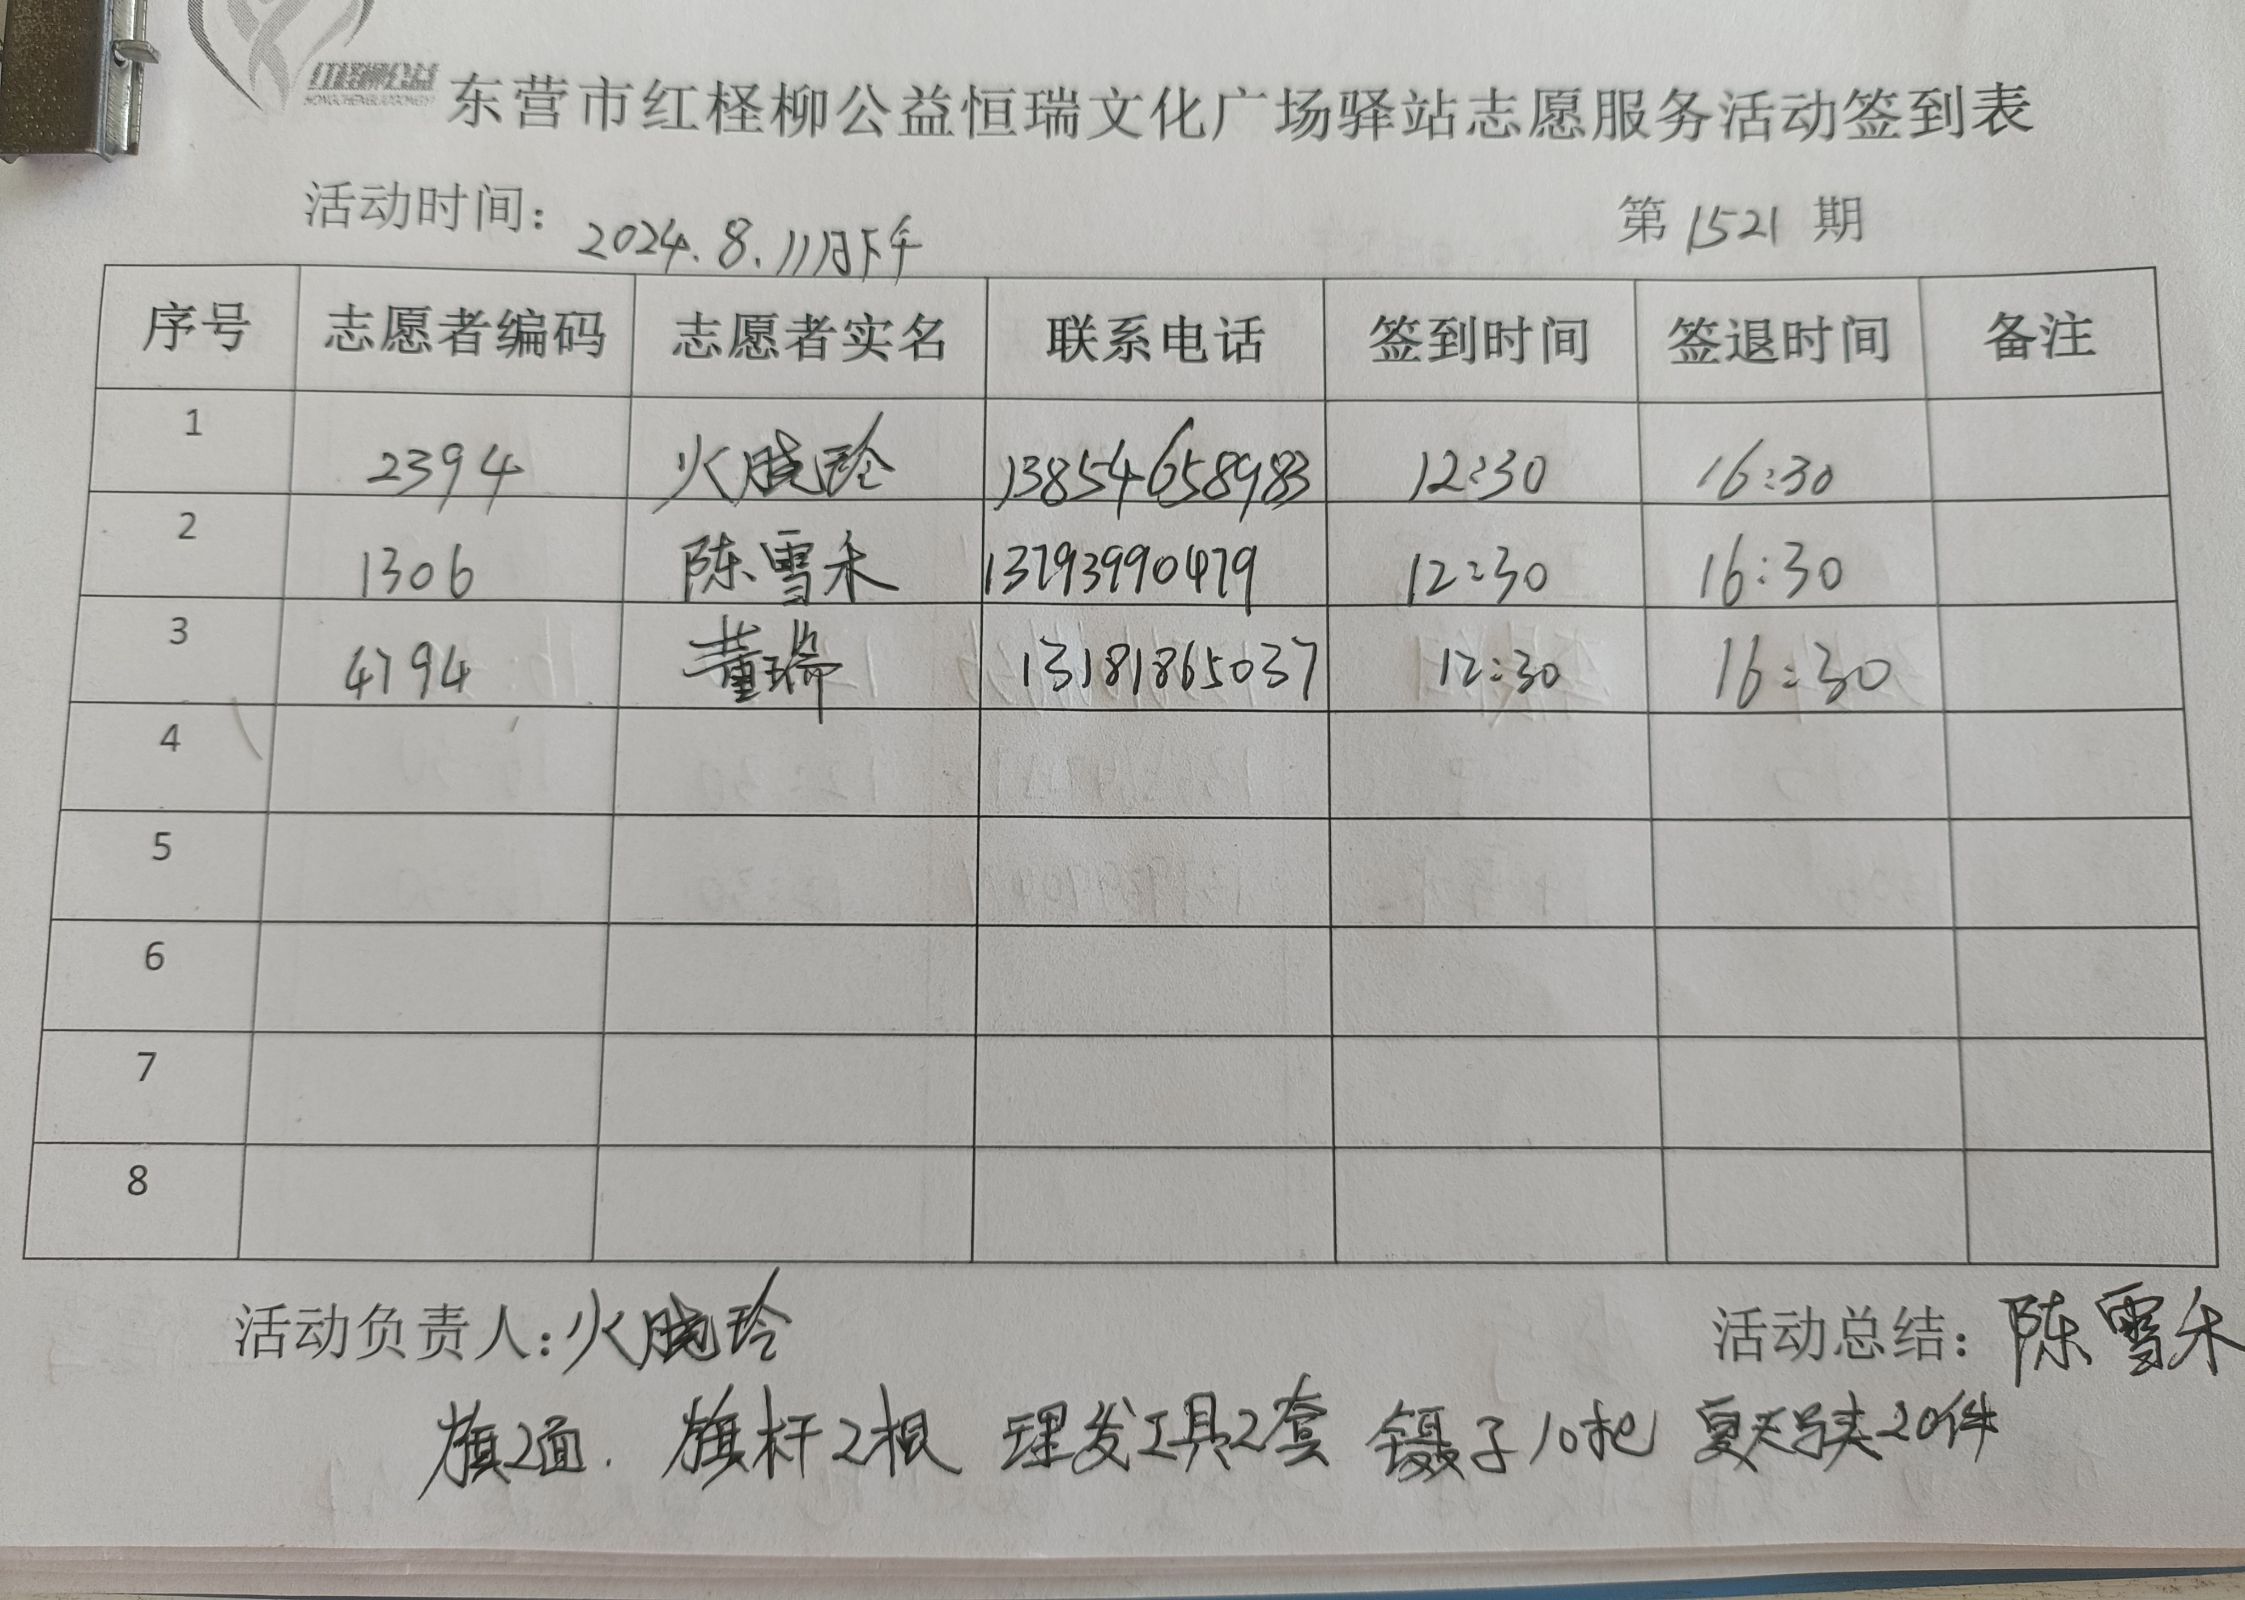 红柽柳公益
东营市红柽柳公益恒瑞文化广场驿站志愿服务活动签到表
活动时间: 2024.8.11月下午 第 1521 期
序号 志愿者编码 志愿者实名 联系电话 签到时间 签退时间 备注
1 2394 火晓玲 13854658983 12:30 16:30
2 1306 陈雪禾 13793990479 12:30 16:30
3 4794 董瑞 13181865037 12:30 16:30
4
5
6
7
8
活动负责人: 火晓玲 活动总结: 陈雪禾
旗2面. 旗杆2根 理发工具2套 镊子10把 夏天马夹20件